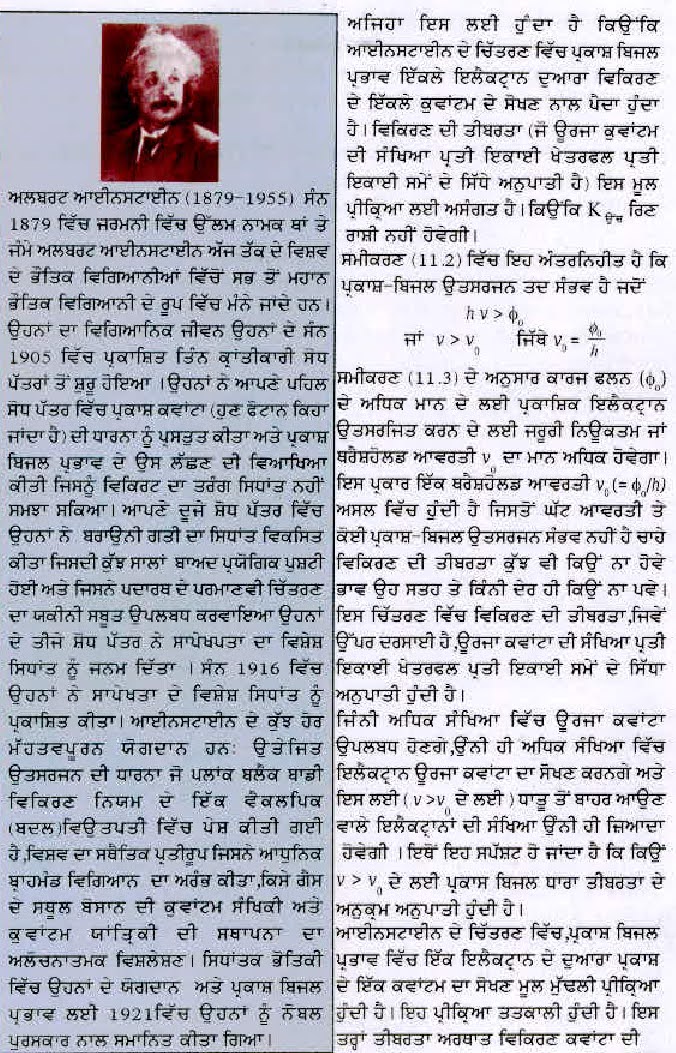 ਅਲਬਰਟ ਆਈਨਸਟਾਈਨ (1879-1955) ਸੰਨ
1879 ਵਿੱਚ ਜਰਮਨੀ ਵਿੱਚ ਉੱਲਮ ਨਾਮਕ ਥਾਂ ਤੇ
ਜੰਮੇ ਅਲਬਰਟ ਆਈਨਸਟਾਈਨ ਅੱਜ ਤੱਕ ਦੇ ਵਿਸ਼ਵ
ਦੇ ਭੌਤਿਕ ਵਿਗਿਆਨੀਆਂ ਵਿੱਚੋਂ ਸਭ ਤੋਂ ਮਹਾਨ
ਭੌਤਿਕ ਵਿਗਿਆਨੀ ਦੇ ਰੂਪ ਵਿੱਚ ਮੰਨੇ ਜਾਂਦੇ ਹਨ।
ਉਹਨਾਂ ਦਾ ਵਿਗਿਆਨਿਕ ਜੀਵਨ ਉਹਨਾਂ ਦੇ ਸੰਨ
1905 ਵਿੱਚ ਪ੍ਰਕਾਸ਼ਿਤ ਤਿੰਨ ਕ੍ਰਾਂਤੀਕਾਰੀ ਸੋਧ
ਪੱਤਰਾਂ ਤੋਂ ਸ਼ੁਰੂ ਹੋਇਆ ।ਉਹਨਾਂ ਨੇ ਆਪਣੇ ਪਹਿਲ
ਸੋਧ ਪੱਤਰ ਵਿੱਚ ਪ੍ਰਕਾਸ਼ ਕਵਾਂਟਾ (ਹੁਣ ਫੋਟਾਨ ਕਿਹਾ
ਜਾਂਦਾ ਹੈ) ਦੀ ਧਾਰਨਾ ਨੂੰ ਪ੍ਰਸਤੁਤ ਕੀਤਾ ਅਤੇ ਪ੍ਰਕਾਸ਼
ਬਿਜਲ ਪ੍ਰਭਾਵ ਦੇ ਉਸ ਲੱਛਣ ਦੀ ਵਿਆਖਿਆ
ਕੀਤੀ ਜਿਸਨੂੰ ਵਿਕਿਰਟ ਦਾ ਤਰੰਗ ਸਿਧਾਂਤ ਨਹੀਂ
ਸਮਝਾ ਸਕਿਆ। ਆਪਣੇ ਦੂਜੇ ਸ਼ੋਧ ਪੱਤਰ ਵਿੱਚ
ਉਹਨਾਂ ਨੇ ਬਰਾਉਨੀ ਗਤੀ ਦਾ ਸਿਧਾਂਤ ਵਿਕਸਿਤ
ਕੀਤਾ ਜਿਸਦੀ ਕੁੱਝ ਸਾਲਾਂ ਬਾਅਦ ਪ੍ਰਯੋਗਿਕ ਪੁਸ਼ਟੀ
ਹੋਈ ਅਤੇ ਜਿਸਨੇ ਪਦਾਰਥ ਦੇ ਪਰਮਾਣਵੀ ਚਿੱਤਰਣ
ਦਾ ਯਕੀਨੀ ਸਬੂਤ ਉਪਲਬਧ ਕਰਵਾਇਆ ਉਹਨਾਂ
ਦੇ ਤੀਜੇ ਸ਼ੋਧ ਪੱਤਰ ਨੇ ਸਾਪੇਖਪਤਾ ਦਾ ਵਿਸ਼ੇਸ਼
ਸਿਧਾਂਤ ਨੂੰ ਜਨਮ ਦਿੱਤਾ । ਸੰਨ 1916 ਵਿੱਚ
ਉਹਨਾਂ ਨੇ ਸਾਪੇਖਤਾ ਦੇ ਵਿਸ਼ੇਸ਼ ਸਿਧਾਂਤ ਨੂੰ
ਪ੍ਰਕਾਸ਼ਿਤ ਕੀਤਾ। ਆਈਨਸਟਾਈਨ ਦੇ ਕੁੱਝ ਹੋਰ
ਮੱਹਤਵਪੂਰਨ ਯੋਗਦਾਨ ਹਨ: ਉਤੇਜਿਤ
ਉਤਸਰਜਨ ਦੀ ਧਾਰਨਾ ਜੋ ਪਲਾਂਕ ਬਲੈਕ ਬਾਡੀ
ਵਿਕਿਰਣ ਨਿਯਮ ਦੇ ਇੱਕ ਵੈਕਲਪਿਕ
(ਬਦਲ)ਵਿਉਤਪਤੀ ਵਿੱਚ ਪੇਸ਼ ਕੀਤੀ ਗਈ
ਹੈ,ਵਿਸ਼ਵ ਦਾ ਸਥੈਤਿਕ ਪ੍ਰਤੀਰੂਪ ਜਿਸਨੇ ਆਧੁਨਿਕ
ਬ੍ਰਾਹਮੰਡ ਵਿਗਿਆਨ ਦਾ ਅਰੰਭ ਕੀਤਾ,ਕਿਸੇ ਗੈਸ
ਦੇ ਸਥੂਲ ਬੋਸਾਨ ਦੀ ਕੁਵਾਂਟਮ ਸੰਖਿਕੀ ਅਤੇ
ਕੁਵਾਂਟਮ ਯਾਂਤ੍ਰਿਕੀ ਦੀ ਸਥਾਪਨਾ ਦਾ
ਅਲੋਚਨਾਤਮਕ ਵਿਸ਼ਲੇਸ਼ਣ। ਸਿਧਾਂਤਕ ਭੋਤਿਕੀ
ਵਿੱਚ ਉਹਨਾਂ ਦੇ ਯੋਗਦਾਨ ਅਤੇ ਪ੍ਰਕਾਸ਼ ਬਿਜਲ
ਪ੍ਰਭਾਵ ਲਈ 1921ਵਿੱਚ ਉਹਨਾਂ ਨੂੰ ਨੋਬਲ
ਪੁਰਸਕਾਰ ਨਾਲ ਸਮਾਨਿਤ ਕੀਤਾ ਗਿਆ।
ਅਜਿਹਾ ਇਸ ਲਈ ਹੁੰਦਾ ਹੈ ਕਿਉਂਕਿ
ਆਈਨਸਟਾਈਨ ਦੇ ਚਿੱਤਰਣ ਵਿੱਚ ਪ੍ਰਕਾਸ਼ ਬਿਜਲ
ਪ੍ਰਭਾਵ ਇੱਕਲੇ ਇਲੈਕਟ੍ਰਾਨ ਦੁਆਰਾ ਵਿਕਿਰਣ
ਦੇ ਇੱਕਲੇ ਕੁਵਾਂਟਮ ਦੇ ਸੋਖਣ ਨਾਲ ਪੈਦਾ ਹੁੰਦਾ
ਹੈ। ਵਿਕਿਰਣ ਦੀ ਤੀਬਰਤਾ (ਜੋ ਊਰਜਾ ਕੁਵਾਂਟਮ
ਦੀ ਸੰਖਿਆ ਪ੍ਰਤੀ ਇਕਾਈ ਖੇਤਰਫਲ ਪ੍ਰਤੀ
ਇਕਾਈ ਸਮੇਂ ਦੇ ਸਿੱਧੇ ਅਨੁਪਾਤੀ ਹੈ) ਇਸ ਮੂਲ
ਪ੍ਰੀਕ੍ਰਿਆ ਲਈ ਅਸੰਗਤ ਹੈ। ਕਿਉਂਕਿ K ਉੱਚ ਰਿਣ
ਰਾਸ਼ੀ ਨਹੀਂ ਹੋਵੇਗੀ।
ਸਮੀਕਰਣ (11.2) ਵਿੱਚ ਇਹ ਅੰਤਰਨਿਹੀਤ ਹੈ ਕਿ
ਪ੍ਰਕਾਸ਼-ਬਿਜਲ ਉਤਸਰਜਨ ਤਦ ਸੰਭਵ ਹੈ ਜਦੋਂ
h ν > ϕ₀
ਜਾਂ ν > ν₀ ਜਿੱਥੇ ν₀ = ϕ₀/h
ਸਮੀਕਰਣ (11.3) ਦੇ ਅਨੁਸਾਰ ਕਾਰਜ ਫਲਨ (ϕ₀)
ਦੇ ਅਧਿਕ ਮਾਨ ਦੇ ਲਈ ਪ੍ਰਕਾਸ਼ਿਕ ਇਲੈਕਟ੍ਰਾਨ
ਉਤਸਰਜਿਤ ਕਰਨ ਦੇ ਲਈ ਜਰੂਰੀ ਨਿਊਕਤਮ ਜਾਂ
ਥਰੈਸ਼ਹੋਲਡ ਆਵਰਤੀ ν₀ ਦਾ ਮਾਨ ਅਧਿਕ ਹੋਵੇਗਾ।
ਇਸ ਪ੍ਰਕਾਰ ਇੱਕ ਥਰੈਸ਼ਹੋਲਡ ਆਵਰਤੀ ν₀(= ϕ₀/h)
ਅਸਲ ਵਿੱਚ ਹੁੰਦੀ ਹੈ ਜਿਸਤੋਂ ਘੱਟ ਆਵਰਤੀ ਤੇ
ਕੋਈ ਪ੍ਰਕਾਸ਼-ਬਿਜਲ ਉਤਸਰਜਨ ਸੰਭਵ ਨਹੀਂ ਹੈ ਚਾਹੇ
ਵਿਕਿਰਣ ਦੀ ਤੀਬਰਤਾ ਕੁੱਝ ਵੀ ਕਿਉਂ ਨਾ ਹੋਵੇ
ਭਾਵ ਉਹ ਸਤਹ ਤੇ ਕਿੰਨੀ ਦੇਰ ਹੀ ਕਿਉਂ ਨਾ ਪਵੇ।
ਇਸ ਚਿੱਤਰਣ ਵਿੱਚ ਵਿਕਿਰਣ ਦੀ ਤੀਬਰਤਾ,ਜਿਵੇਂ
ਉੱਪਰ ਦਰਸਾਈ ਹੈ,ਊਰਜਾ ਕਵਾਂਟਾ ਦੀ ਸੰਖਿਆ ਪ੍ਰਤੀ
ਇਕਾਈ ਖੇਤਰਫਲ ਪ੍ਰਤੀ ਇਕਾਈ ਸਮੇਂ ਦੇ ਸਿੱਧਾ
ਅਨੁਪਾਤੀ ਹੁੰਦੀ ਹੈ।
ਜਿੰਨੀ ਅਧਿਕ ਸੰਖਿਆ ਵਿੱਚ ਊਰਜਾ ਕਵਾਂਟਾ
ਉਪਲਬਧ ਹੋਣਗੇ,ਉੱਨੀ ਹੀ ਅਧਿਕ ਸੰਖਿਆ ਵਿੱਚ
ਇਲੈਕਟ੍ਰਾਨ ਊਰਜਾ ਕਵਾਂਟਾ ਦਾ ਸੋਖਣ ਕਰਨਗੇ ਅਤੇ
ਇਸ ਲਈ (ν >ν₀ ਦੇ ਲਈ ) ਧਾਤੂ ਤੋਂ ਬਾਹਰ ਆਉਣ
ਵਾਲੇ ਇਲੈਕਟ੍ਰਾਨਾਂ ਦੀ ਸੰਖਿਆ ਉੱਨੀ ਹੀ ਜ਼ਿਆਦਾ
ਹੋਵੇਗੀ । ਇਥੋਂ ਇਹ ਸਪੱਸ਼ਟ ਹੋ ਜਾਂਦਾ ਹੈ ਕਿ ਕਿਉਂ
ν > ν₀ ਦੇ ਲਈ ਪ੍ਰਕਾਸ ਬਿਜਲ ਧਾਰਾ ਤੀਬਰਤਾ ਦੇ
ਅਨੁਕ੍ਰਮ ਅਨੁਪਾਤੀ ਹੁੰਦੀ ਹੈ।
ਆਈਨਸਟਾਈਨ ਦੇ ਚਿੱਤਰਣ ਵਿੱਚ,ਪ੍ਰਕਾਸ਼ ਬਿਜਲ
ਪ੍ਰਭਾਵ ਵਿੱਚ ਇੱਕ ਇਲੈਕਟ੍ਰਾਨ ਦੇ ਦੁਆਰਾ ਪ੍ਰਕਾਸ਼
ਦੇ ਇੱਕ ਕਵਾਂਟਮ ਦਾ ਸੋਖਣ ਮੂਲ ਮੁੱਢਲੀ ਪ੍ਰੀਕ੍ਰਿਆ
ਹੁੰਦੀ ਹੈ। ਇਹ ਪ੍ਰੀਕ੍ਰਿਆ ਤਤਕਾਲੀ ਹੁੰਦੀ ਹੈ। ਇਸ
ਤਰ੍ਹਾਂ ਤੀਬਰਤਾ ਅਰਥਾਤ ਵਿਕਿਰਣ ਕਵਾਂਟਾ ਦੀ